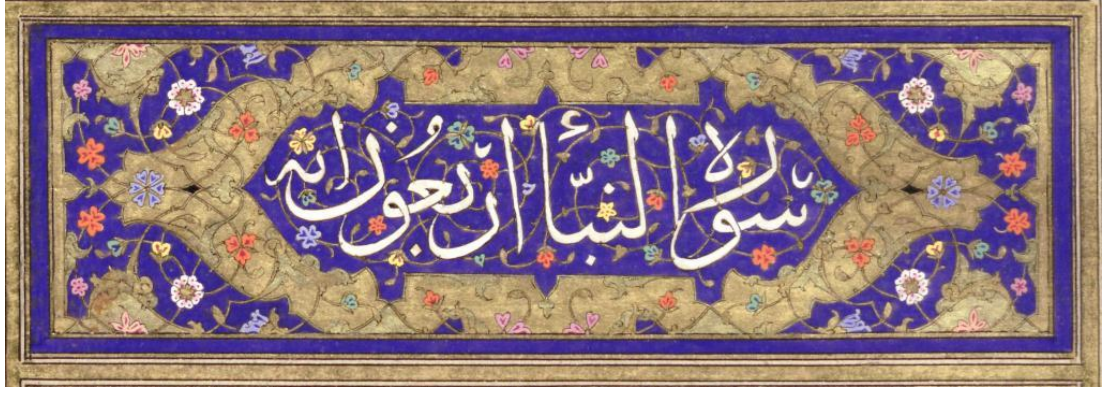 سورة النبأ أربعون آية